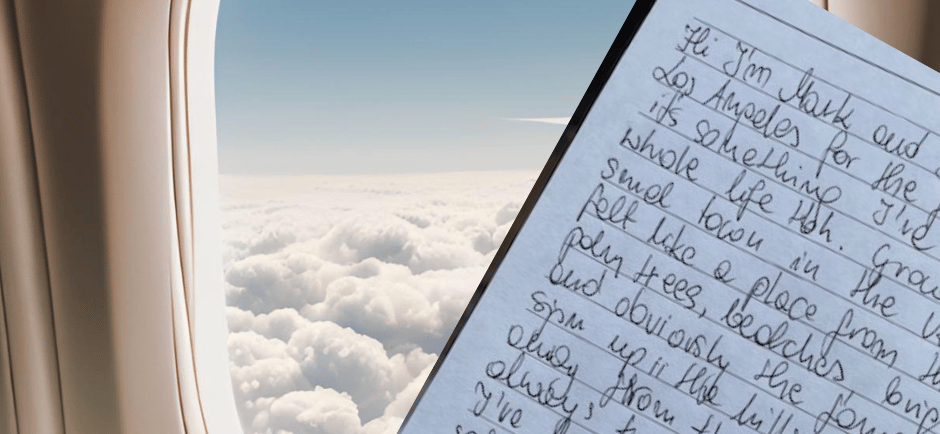 Hi I'm Mark and
Los Angeles for the
it's something I've
whole life tbh. Grow
small town in the
felt like a place from th
palm trees, beaches
and obviously the
sign up in the hill
away from th
always
I've